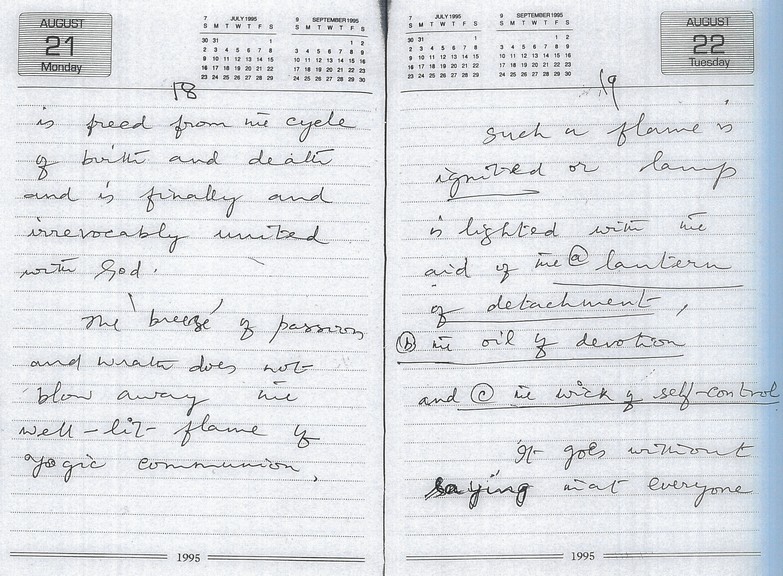 AUGUST
21
Monday
7 JULY 1995
S M T W T F S
30 31 1
2 3 4 5 6 7 8
9 10 11 12 13 14 15
16 17 18 19 20 21 22
23 24 25 26 27 28 29
9 SEPTEMBER 1995
S M T W T F S
1 2
3 4 5 6 7 8 9
10 11 12 13 14 15 16
17 18 19 20 21 22 23
24 25 26 27 28 29 30
18
is freed from the cycle
of birth and death
and is finally and
irrevocably united
with God.
The 'breeze' of passion
and wrath does not
blow away the
well-lit flame of
yogic communion.
1995
7 JULY 1995
S M T W T F S
30 31 1
2 3 4 5 6 7 8
9 10 11 12 13 14 15
16 17 18 19 20 21 22
23 24 25 26 27 28 29
9 SEPTEMBER 1995
S M T W T F S
1 2
3 4 5 6 7 8 9
10 11 12 13 14 15 16
17 18 19 20 21 22 23
24 25 26 27 28 29 30
AUGUST
22
Tuesday
19
Such a flame is
ignited or lamp
is lighted with the
aid of the (a) lantern
of detachment,
(b) the oil of devotion
and (c) the wick of self-control
It goes without
saying that everyone
1995